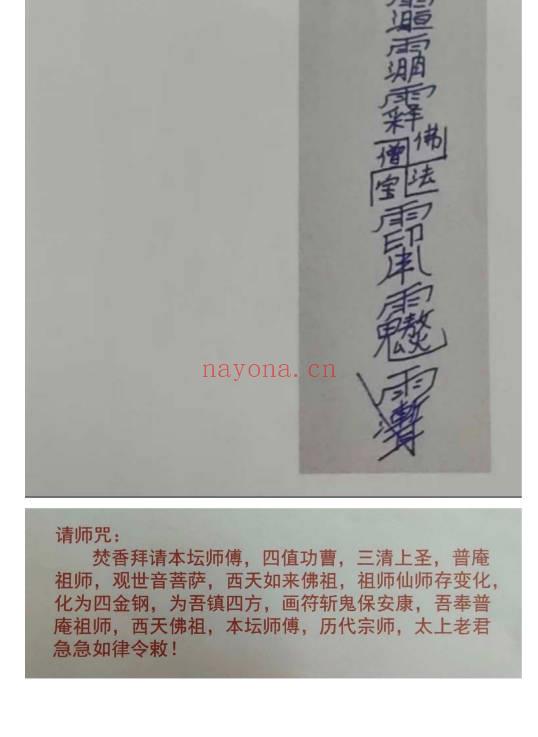 佛
僧
法
宝
nayona.cn
请师咒：
焚香拜请本坛师傅，四值功曹，三清上圣，普庵
祖师，观世音菩萨，西天如来佛祖，祖师仙师存变化，
化为四金钢，为吾镇四方，画符斩鬼保安康，吾奉普
庵祖师，西天佛祖，本坛师傅，历代宗师，太上老君
急急如律令敕！